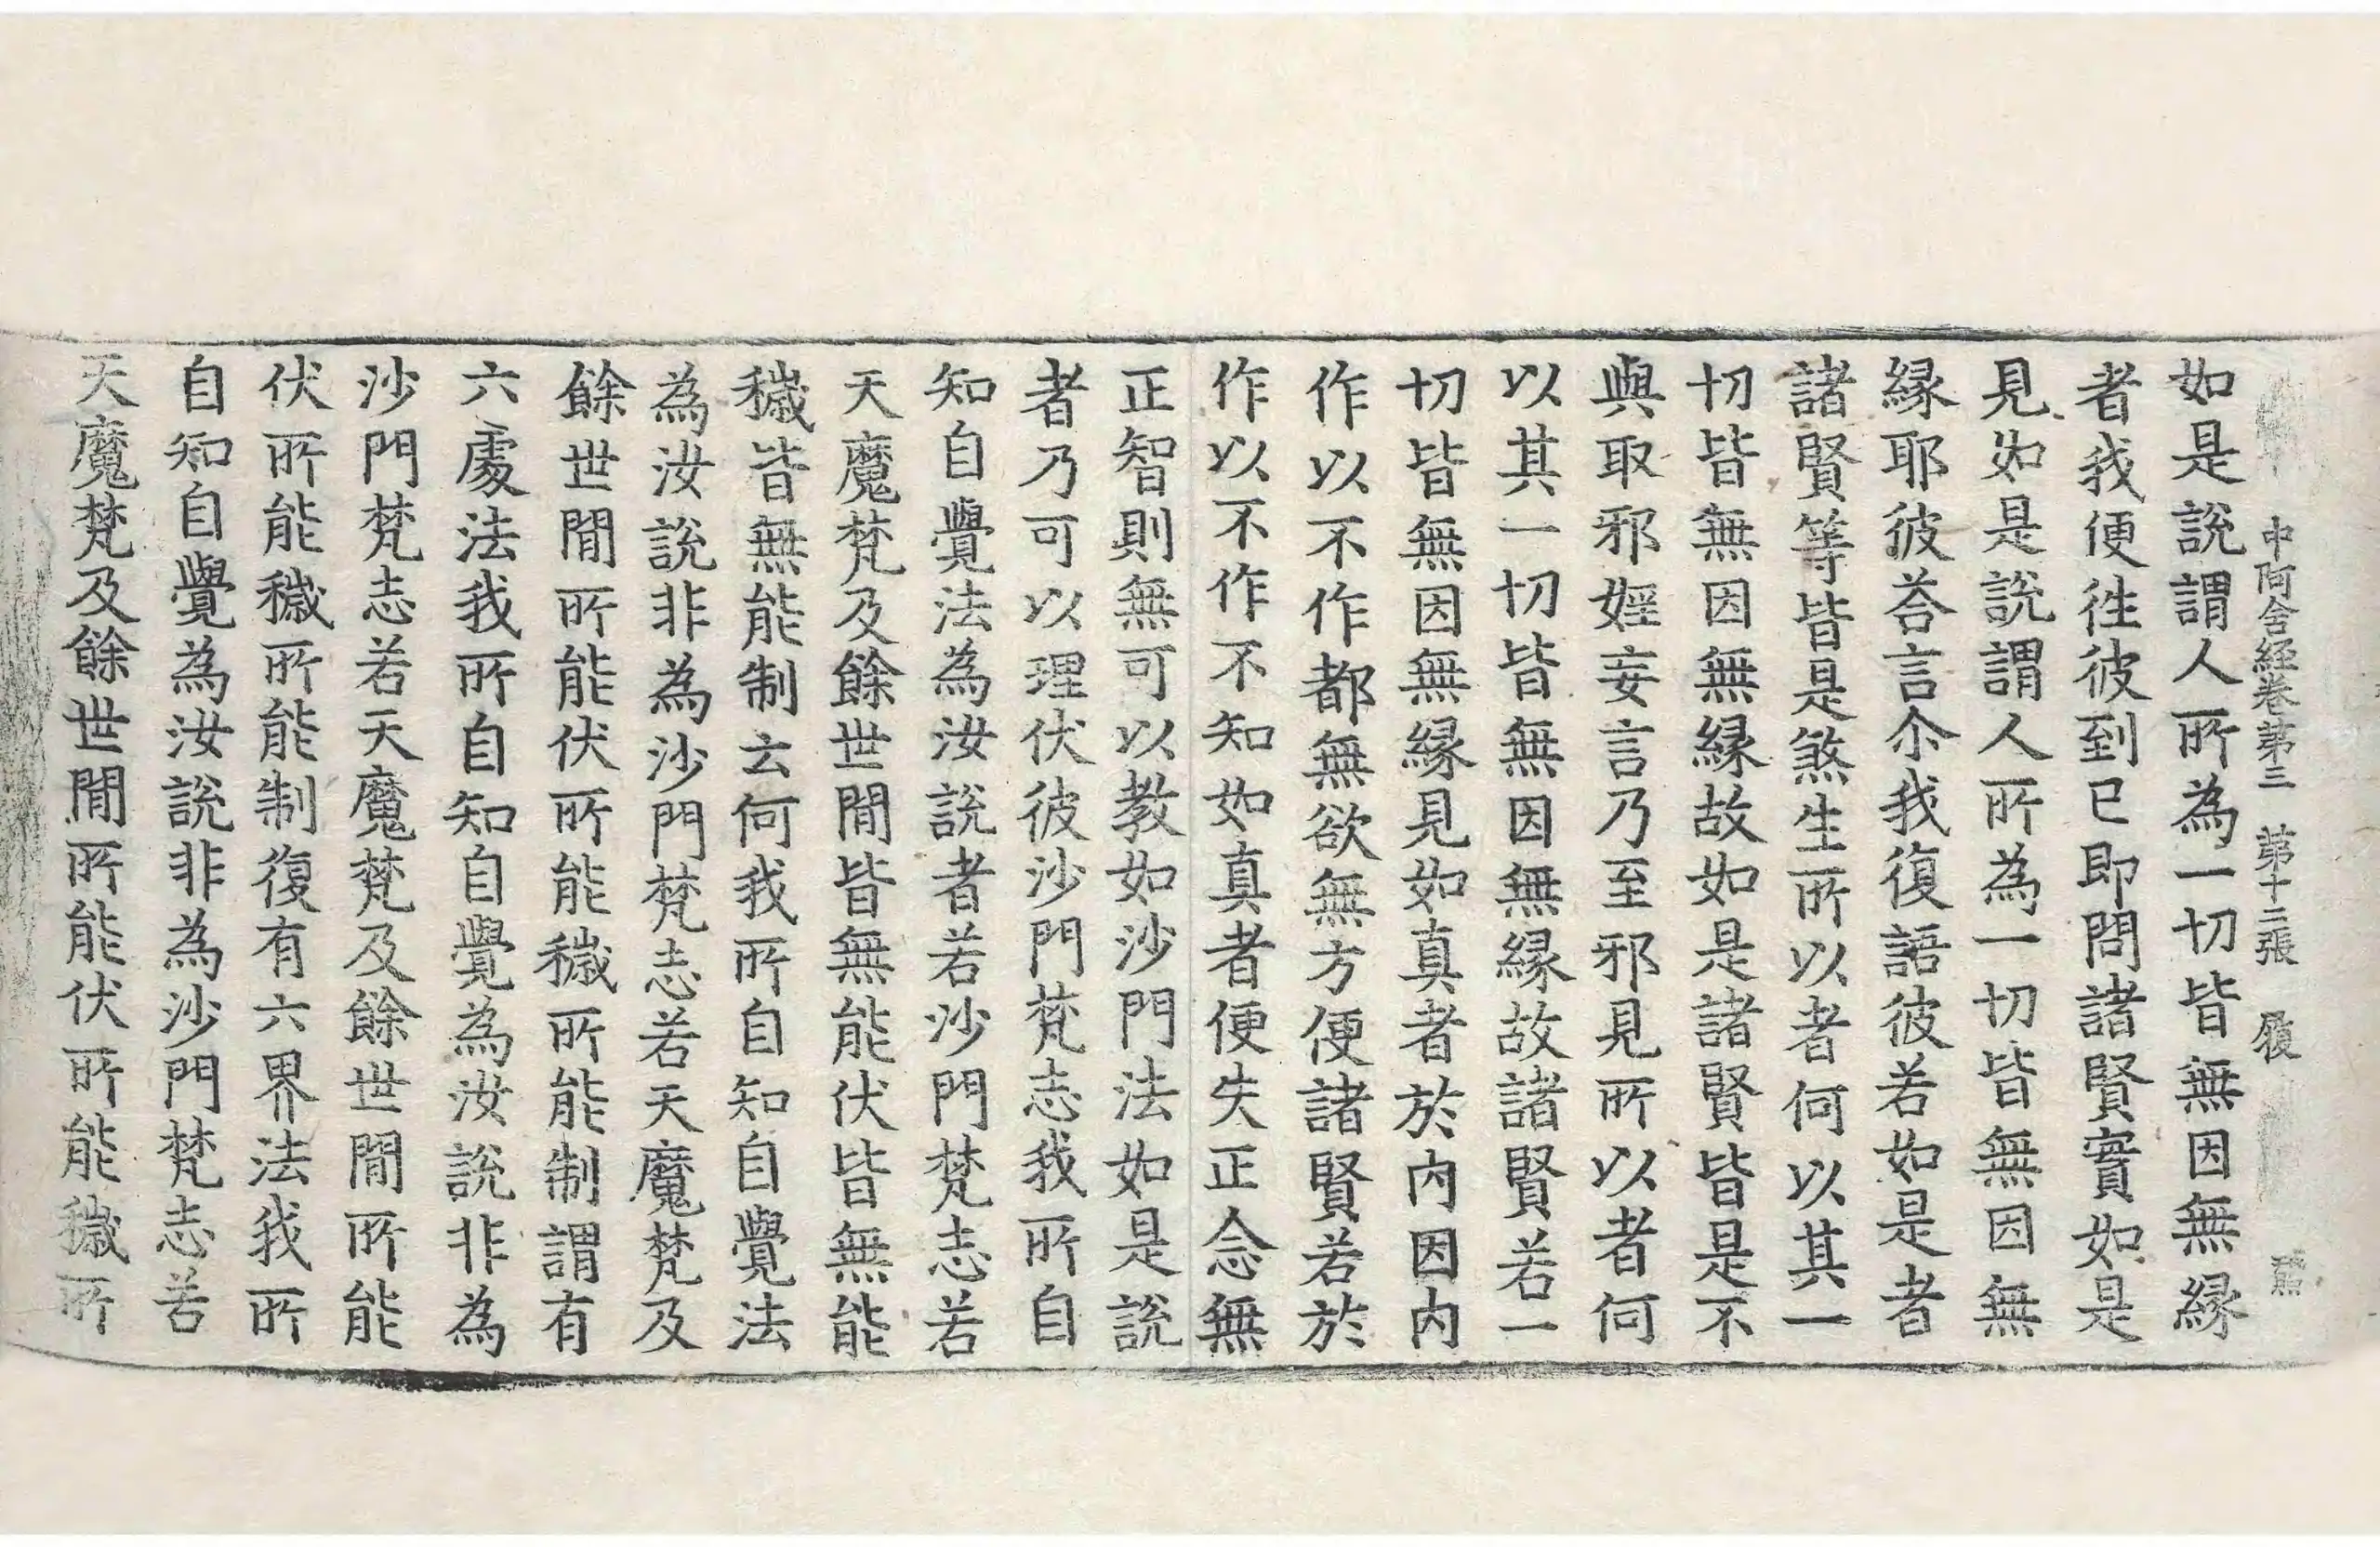 中阿含經卷第三　第十二張　履
如是說謂人所為一切皆無因無縁
者我便往彼到已即問諸賢實如是
見如是說謂人所為一切皆無因無
縁耶彼荅言尒我復語彼若如是者
諸賢等皆是煞生所以者何以其一
切皆無因無縁故如是諸賢皆是不
與取邪婬妄言乃至邪見所以者何
以其一切皆無因無縁故諸賢若一
切皆無因無縁見如真者於内因内
作以不作都無欲無方便諸賢若於
作以不作不知如真者便失正念無
正智則無可以教如沙門法如是說
者乃可以理伏彼沙門梵志我所自
知自覺法為汝說者若沙門梵志若
天魔梵及餘世閒皆無能伏皆無能
穢皆無能制云何我所自知自覺法
為汝說非為沙門梵志若天魔梵及
餘世閒所能伏所能穢所能制謂有
六處法我所自知自覺為汝說非為
沙門梵志若天魔梵及餘世閒所能
伏所能穢所能制復有六界法我所
自知自覺為汝說非為沙門梵志若
天魔梵及餘世閒所能伏所能穢所